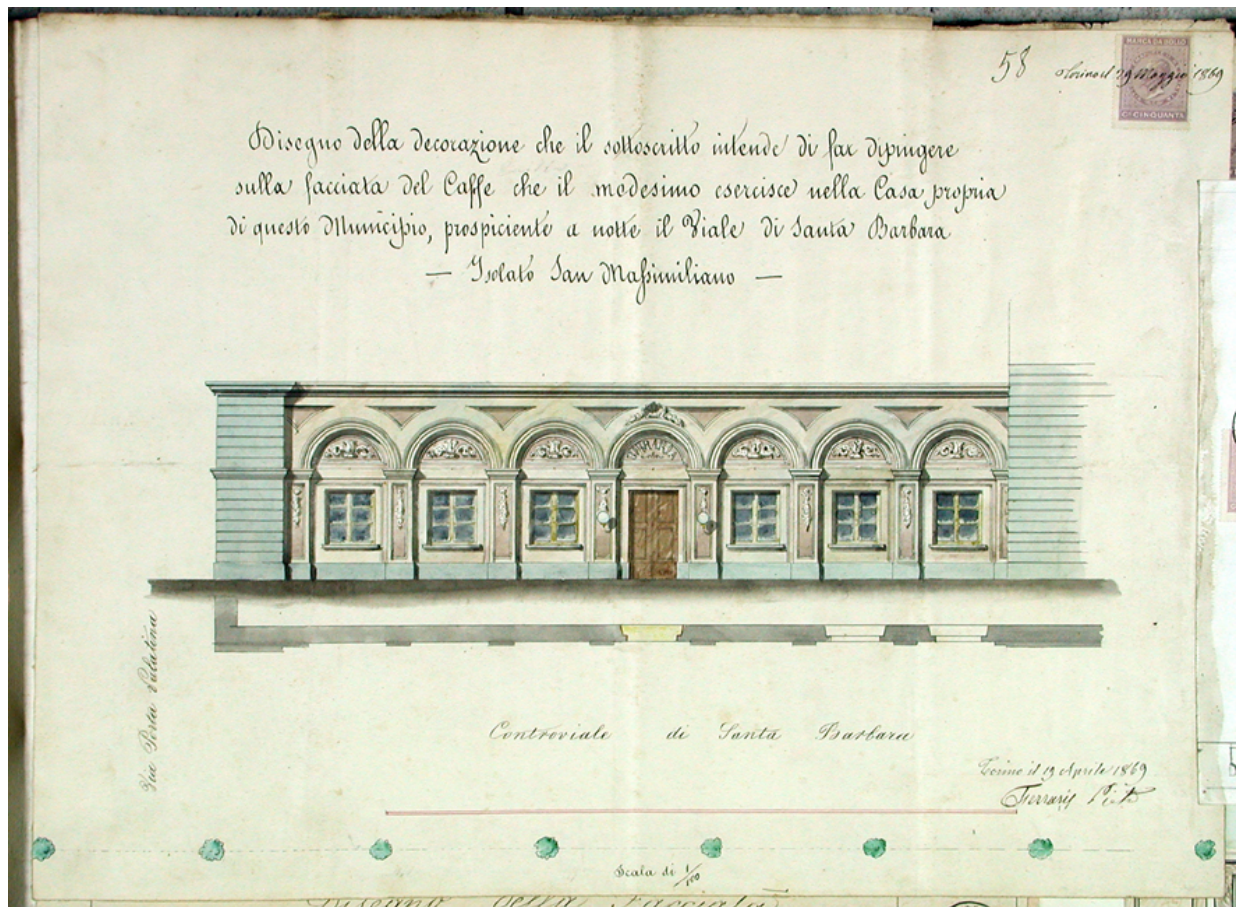 58
Torino il 29 Maggio 1869
MARCA DA BOLLO
Cmi CINQUANTA
Disegno della decorazione che il sottoscritto intende di far dipingere
sulla facciata del Caffe che il medesimo esercisce nella Casa propria
di questo Municipio, prospiciente a notte il Viale di Santa Barbara
— Isolato San Massimiliano —
Via Porta Palatina
Controviale di Santa Barbara
Torino il 19 Aprile 1869
Ferraris
Scala di 1/100
Disegno della Facciata